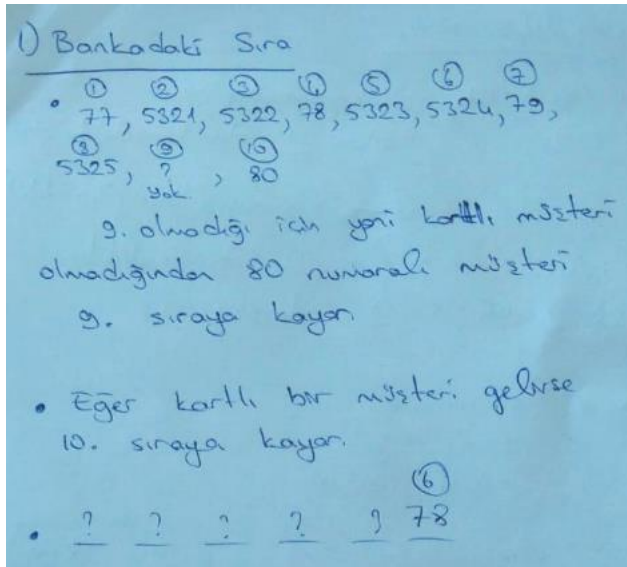 1) Bankadaki Sıra
① ② ③ ④ ⑤ ⑥ ⑦
• 77, 5321, 5322, 78, 5323, 5324, 79,
⑧ ⑨ ⑩
5325, ? , 80
yok
9. olmadığı için yani kartlı müşteri
olmadığından 80 numaralı müşteri
9. sıraya kayar.
• Eğer kartlı bir müşteri gelirse
10. sıraya kayar.
⑥
• ? ? ? ? ? 78